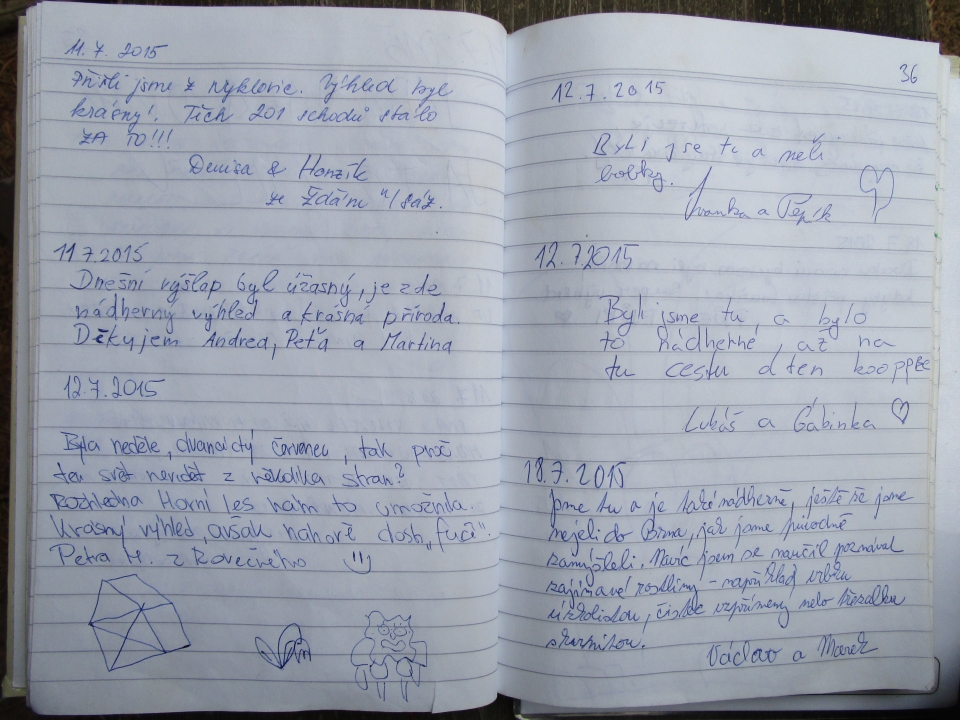 11.7. 2015
Přišli jsme z nyklovic. Výhled byl
krásný! Těch 201 schodů stálo
ZA TO!!!
Denisa & Honzík
ze Žďáru n/sáz.
11.7.2015
Dnešní výšlap byl úžasný, je zde
nádherný výhled a krásná příroda.
Děkujem Andrea, Peťa a Martina
12.7.2015
Byla neděle, dvanáctý červenec, tak proč
ten svět nevidět z několika stran?
Rozhledna Horní les nám to umožnila.
Krásný výhled, avšak nahoře dost „fučí".
Petra H. z Rovečného
36
12.7.2015
Byli jse tu a měli
bobky.
Ivanka a Pepík
12.7.2015
Byli jsme tu, a bylo
to nádherné, až na
tu cestu
Lukáš a Gábinka ♡
18.7.2015
Jsme tu a je také nádherně, ještě že jsme
nejeli do Brna, jak jsme původně
zamýšleli. Navíc jsem se naučil poznávat
zajímavé rostliny - například vrbku
úzkolistou, čistec vzpřímený nebo třezalku
skvrnitou!
Václav a Marek